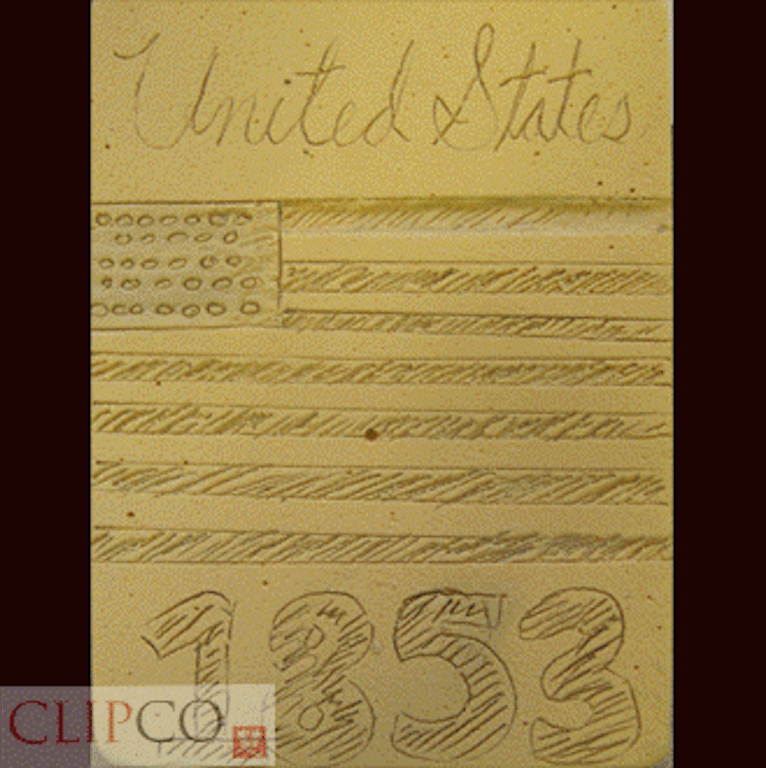 United States
1853
CLIPCO